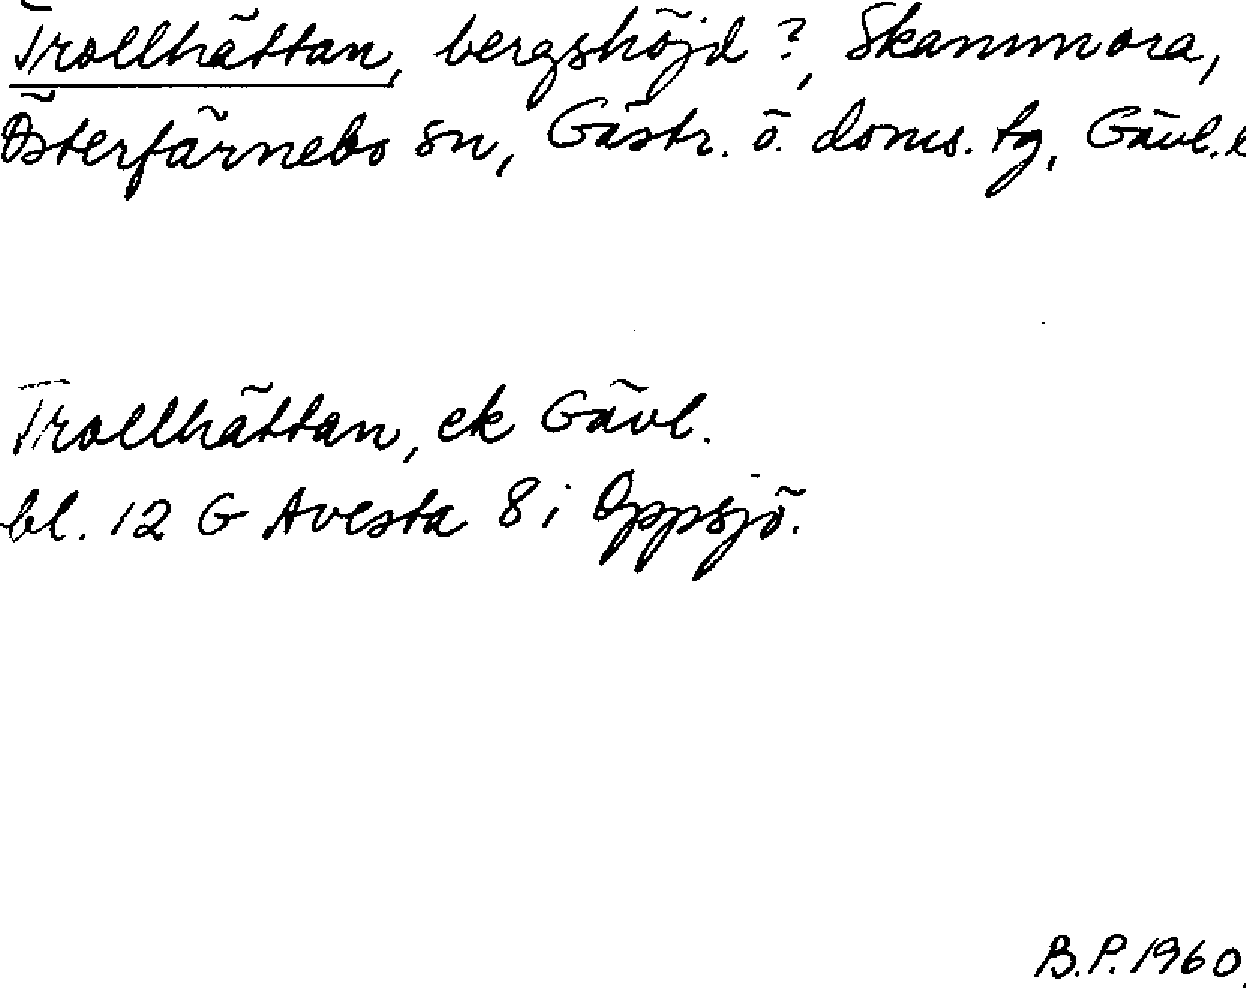 Trollhättan, bergshöjd?, Skammora,
Österfärnebo sn, Gästr. ö. doms. tg, Gävl. l
Trollhättan, ek Gävl.
bl. 12 G Avesta 8 i Oppsjö.
B.P. 1960.